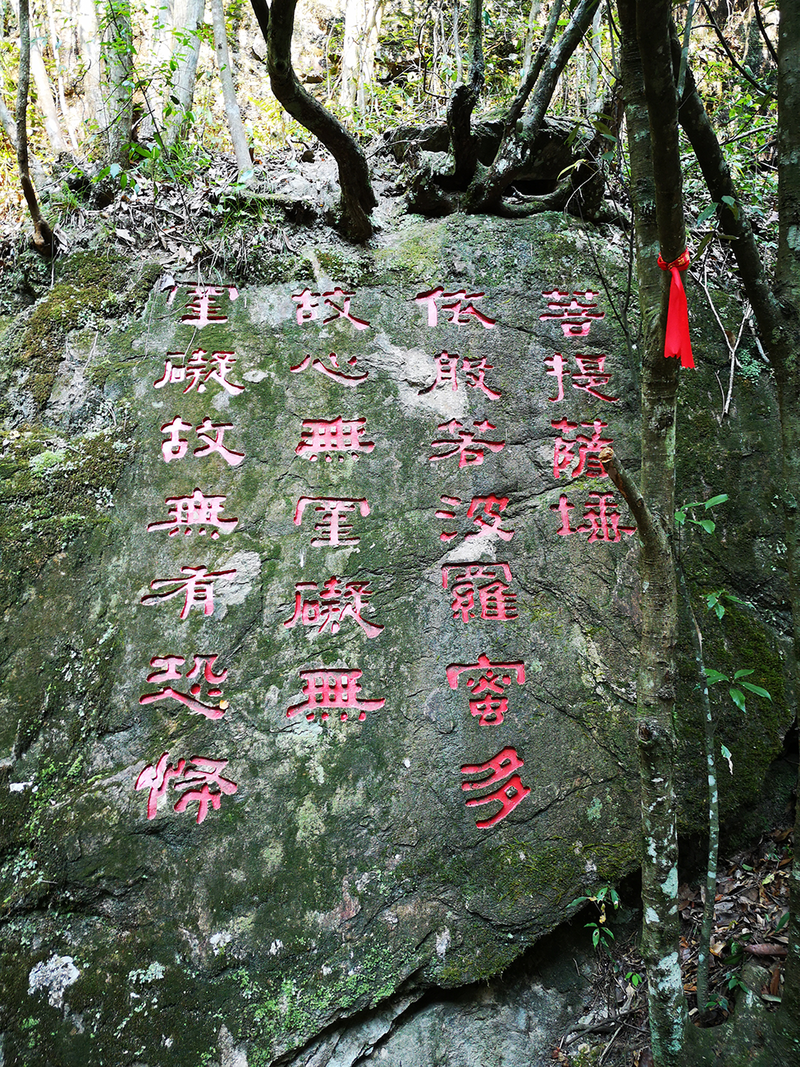 菩提薩埵
依般若波羅蜜多
故心無罣礙無
罣礙故無有恐怖